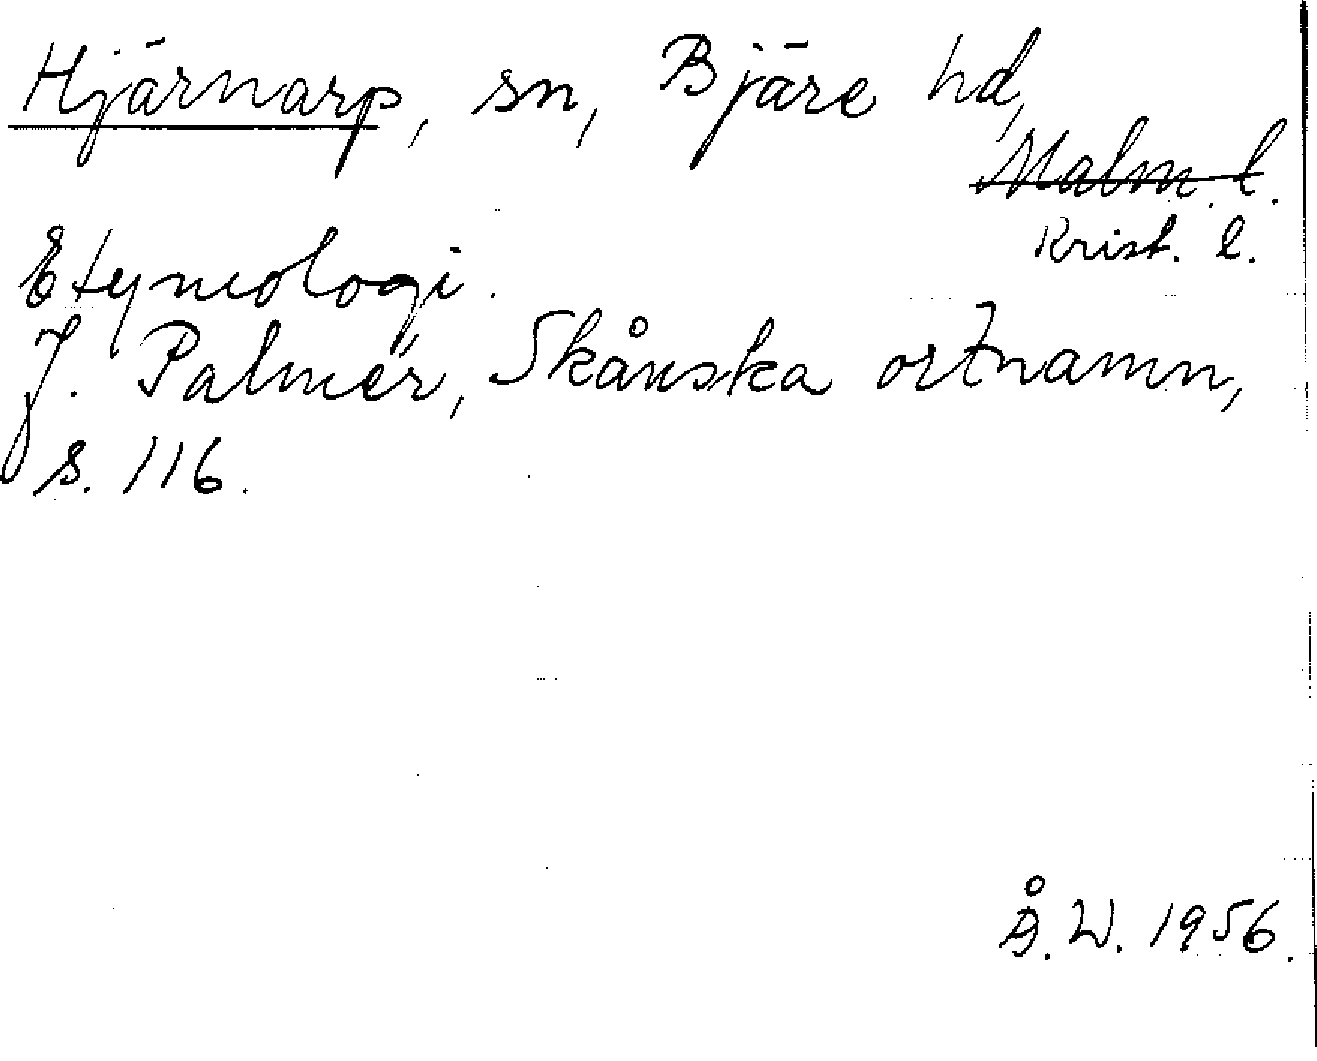 Hjärnarp, sn, Bjäre hd,
Malm. l.
Krist. l.
Etymologi.
J. Palmér, Skånska ortnamn,
s. 116.
Å. W. 1956.